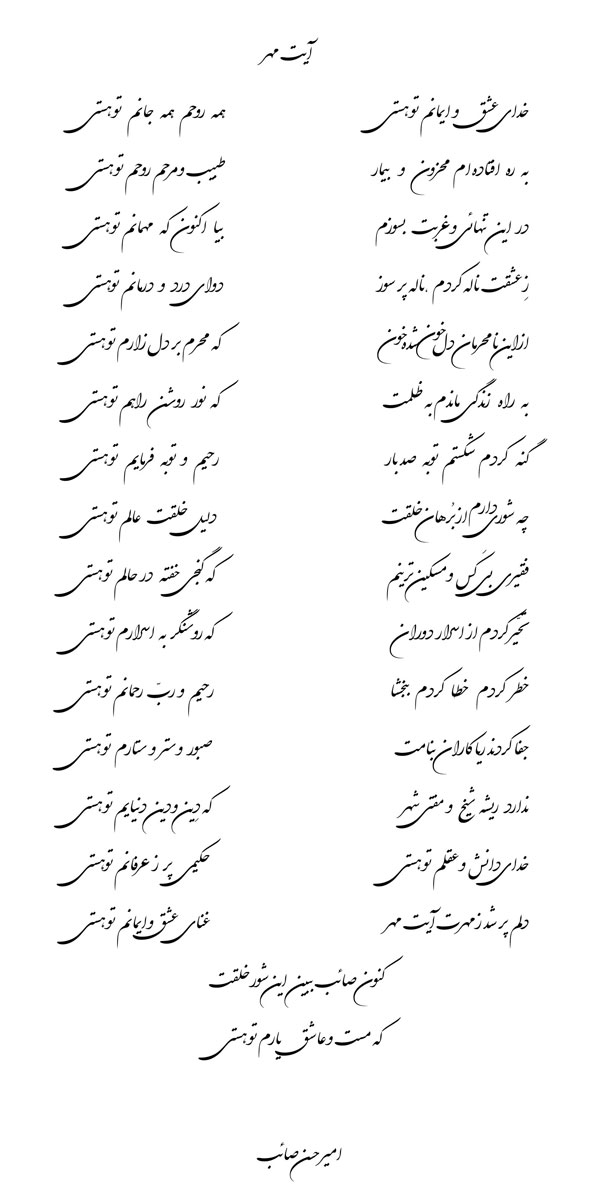 آیت مهر
خدای عشق و ایمانم تو هستی همه روحم همه جانم تو هستی
به ره افتاده ام محزون و بیمار طبیب و مرحم روحم تو هستی
در این تنهائی و غربت بسوزم بیا اکنون که مهمانم تو هستی
زِعشقت ناله کردم ،ناله پر سوز دوای درد و درمانم تو هستی
از این نامحرمان دل خون شده خون که محرم بر دل زارم تو هستی
به راه زندگی ماندم به ظلمت که نور روشن راهم تو هستی
گنه کردم شکستم توبه صد بار رحیم و توبه فرمایم تو هستی
چه شوری دارم از بُرهان خلقت دلیل خلقت عالم تو هستی
فقیری بی کَس و مسکین ترینم که گنجی خفته در حالم تو هستی
تحیّر کردم از اسرار دوران که روشنگر به اسرارم تو هستی
خطر کردم خطا کردم ببخشا رحیم و ربّ رحمانم تو هستی
جفا کردند ریا کاران بنامت صبور و ستر و ستارم تو هستی
ندارد ریشه شیخ و مفتی شهر که دِین و دین دنیایم تو هستی
خدای دانش و عقلم تو هستی حکیمی پر ز عرفانم تو هستی
دلم پر شد ز مهرت آیت مهر غنای عشق و ایمانم تو هستی
کنون صائب ببین این شور خلقت
که مست و عاشق یارم تو هستی
امیرحسن صائب